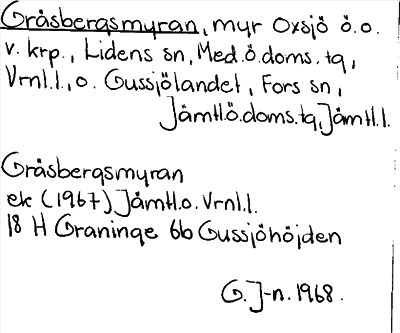 Gråsbergsmyran, myr Oxsjö ö.o.
v. krp., Lidens sn, Med.ö.doms.tg,
Vrnl.l., o. Gussjölandet, Fors sn,
Jämtl.ö.doms.tg, Jämtl.l.
Gråsbergsmyran
ek (1967) Jämtl.o. Vrnl.l.
18 H Graninge 6b Gussjöhöjden
G. J-n. 1968.